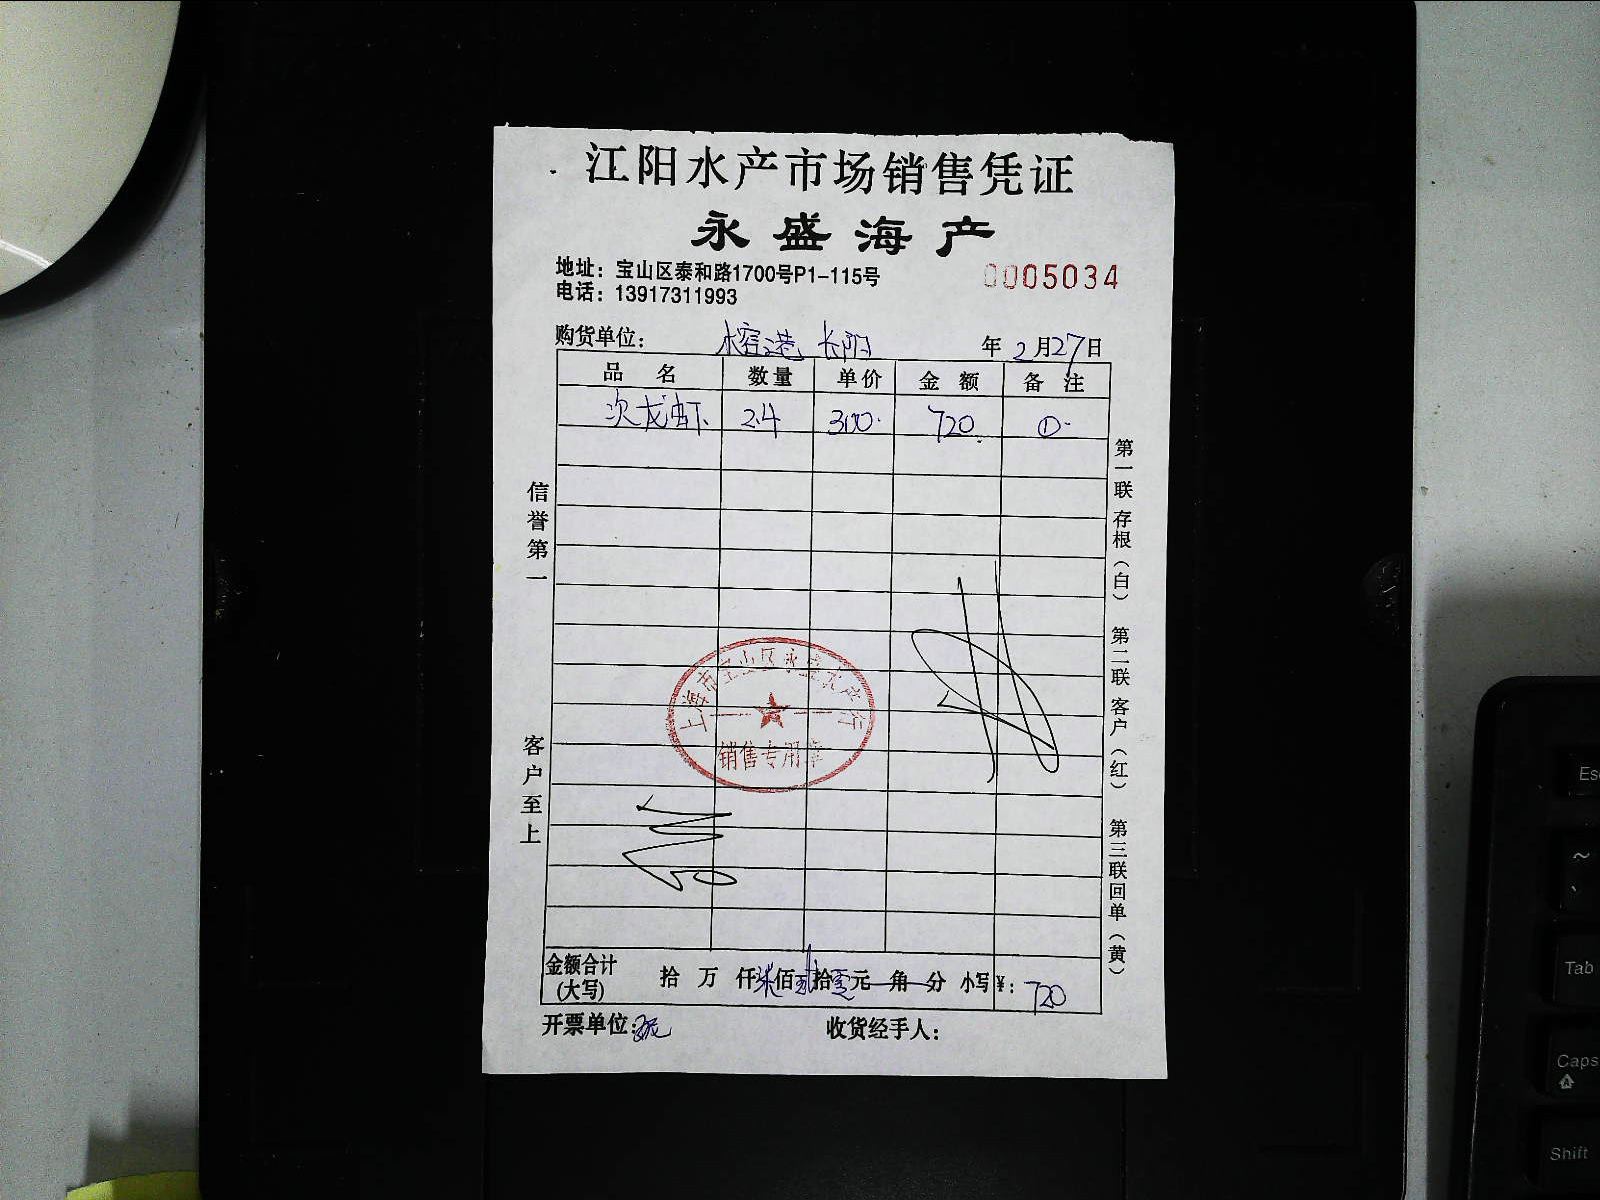 江阳水产市场销售凭证
永盛海产
地址：宝山区泰和路1700号P1-115号
0005034
电话：13917311993
购货单位： 榕港 长阳 年 2月27日
品名 数量 单价 金额 备注
次龙虾 2.4 300. 720. ①.
信誉第一
客户至上
第一联 存根（白） 第二联 客户（红） 第三联 回单（黄）
上海市宝山区永盛水产行
销售专用章
金额合计(大写) 拾 万 仟柒佰贰拾零元 角 分 小写¥：720
开票单位：
收货经手人：
Esc
~
Tab
Caps
A
Shift